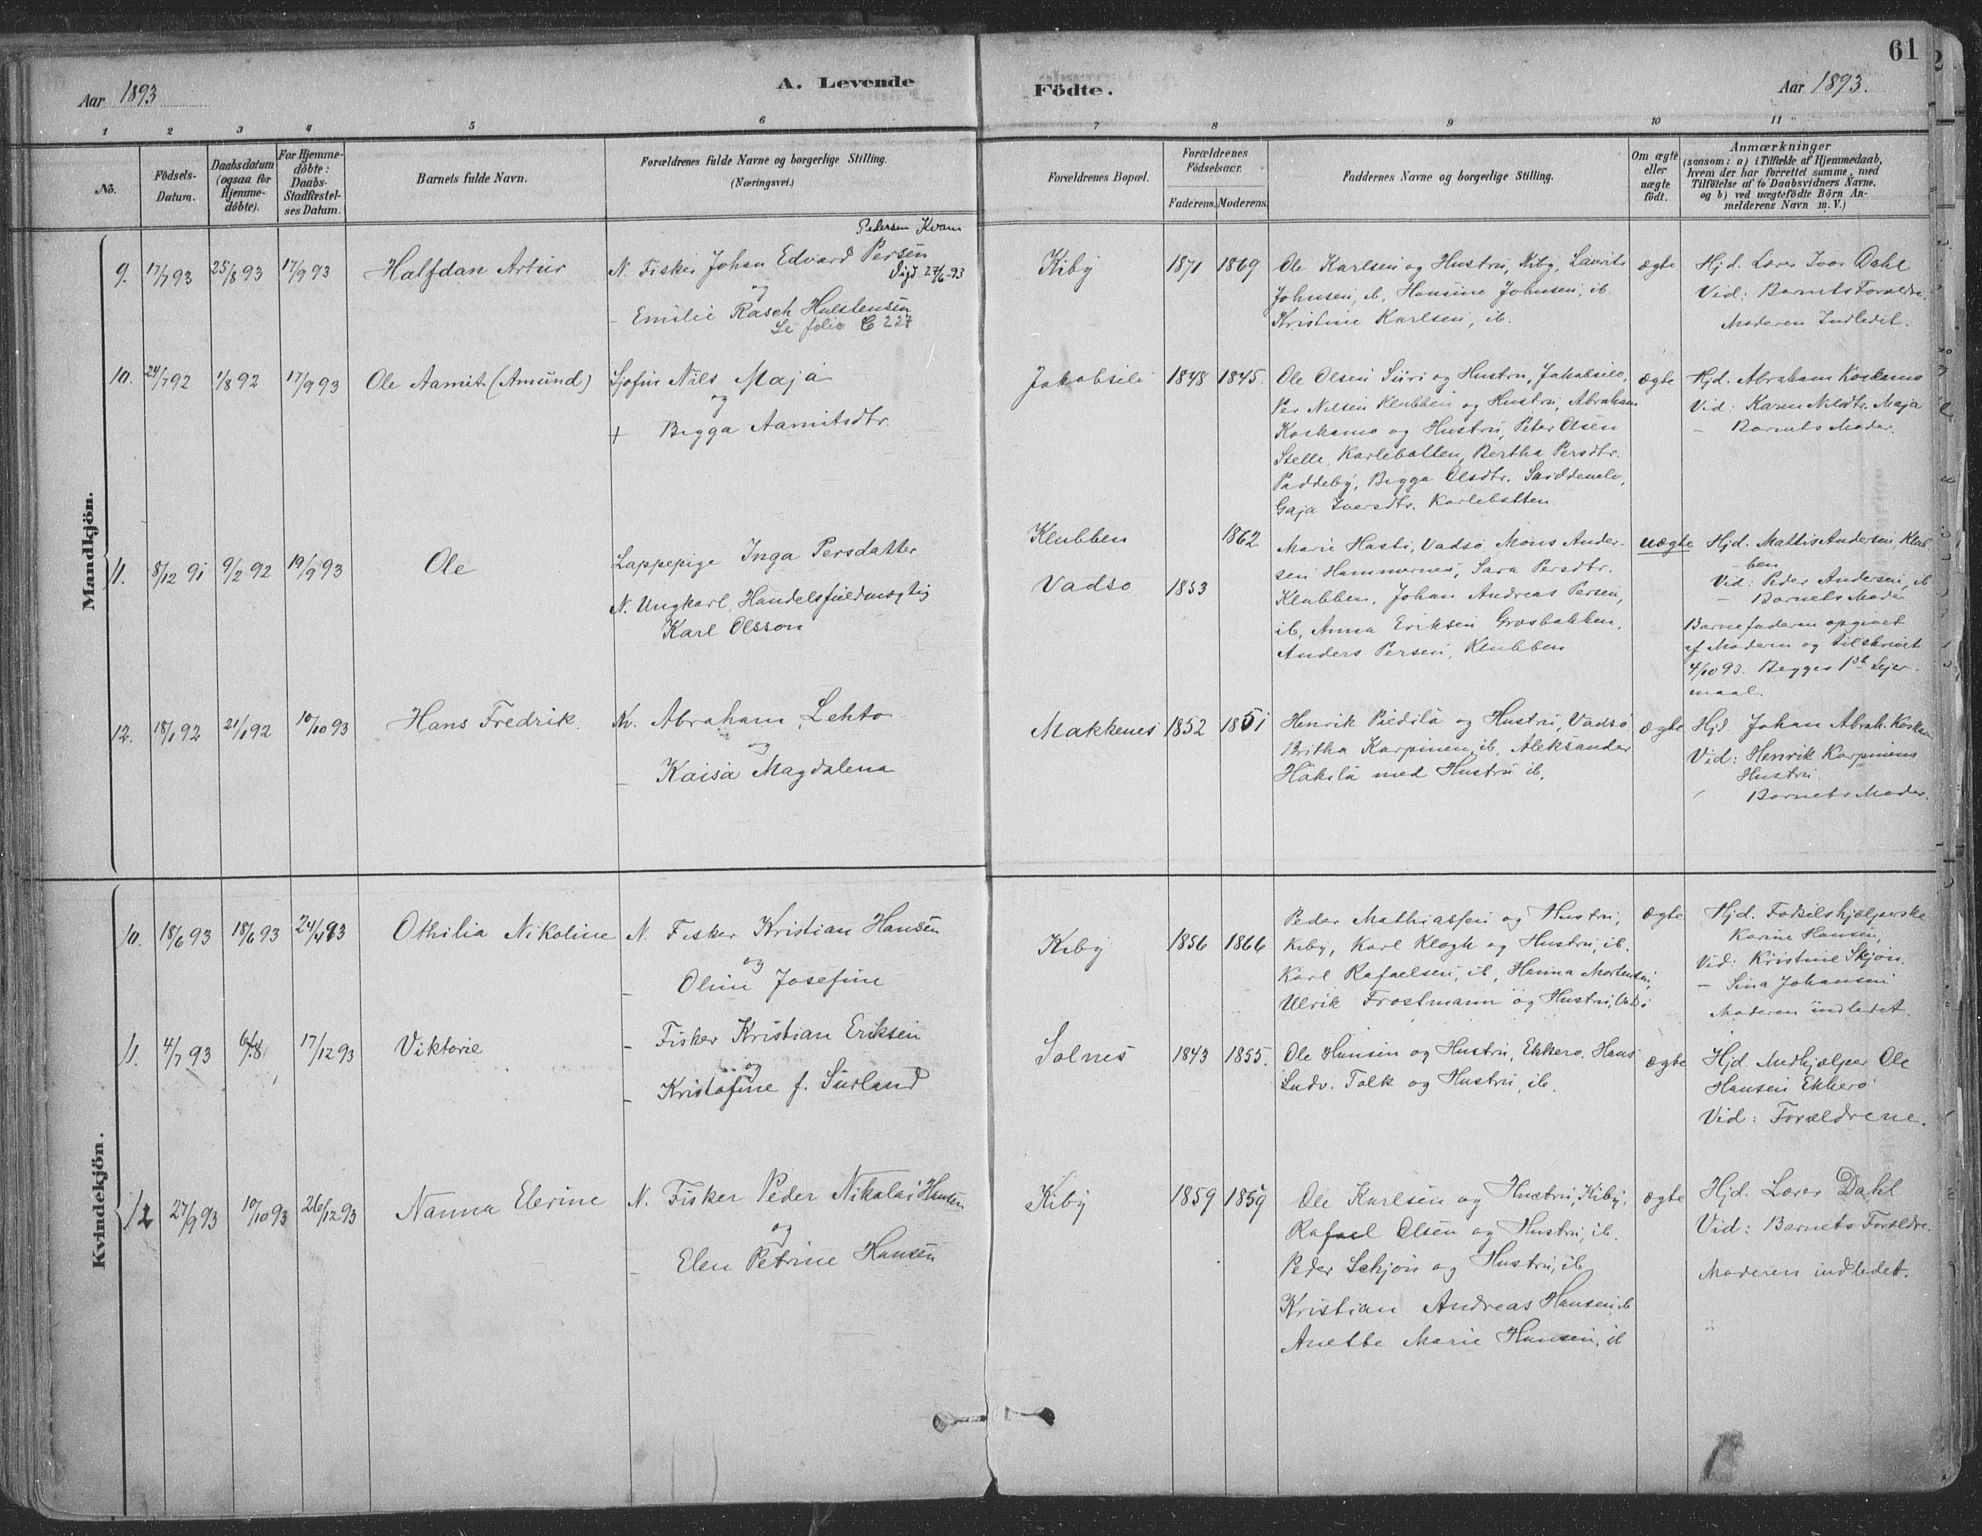 61
Aar 1893
A. Levende
Födte.
Aar 1893.
1 2 3 4 5 6 7 8 9 10 11
No.
Födsels-
Datum.
Daabsdatum
(ogsaa for
Hjemme-
döbte).
For Hjemme-
döbte:
Daabs-
Stadfæstel-
ses Datum.
Barnets fulde Navn.
Forældrenes fulde Navne og borgerlige Stilling.
(Næringsvei.)
Forældrenes Bopæl.
Forældrenes
Födselsaar.
Faderens. Moderens.
Faddernes Navne og borgerlige Stilling.
Om ægte
eller
uægte
födt.
Anmærkninger
(saasom: a) i Tilfælde af Hjemmedaab,
hvem der har forrettet samme, med
Tilföielse af to Daabsvidners Navne,
og b) ved uægtefödte Börn An-
melderens Navn m. V.)
Mandkjön.
9. 17/7 93 25/8 93 17/9 93 Halfdan Artur
Pedersen Kvam
N. Fisker Johan Edvard Persen
Vigd 27/6-93
og
- Emilie Rasch Hulstensen
Se folio C 227
Kiby 1871 1869
Ole Karlsen og Hustru, Kiby, Laurits
Johnsen, ib, Hansine Johnsen, ib.
Kristine Karlsen, ib.
ægte
Hjd. Lærer Ivar Dahl
Vid: Barnets Forældre.
Moderen Indledet.
10. 24/7 92 1/8 92 17/9 93 Ole Aamit (Amund)
Sjøfin Nils Maja
og
+ Bigga Aamitsdtr.
Jakobselv 1848 1845.
Ole Olsen Siiri og Hustru, Jakobselv,
Per Nilsen Klubben og Hustru, Abraham
Koskamo og Hustru, Peter Olsen
Stelle, Karlebotten, Bertha Persdtr.
Paddeby, Bigga Olsdtr. Skiddenelv,
Gaja Iversdtr. Karlebotten
ægte
Hjd. Abraham Koskamo
Vid: Karen Nilsdtr. Maja
- Barnets Moder.
11. 8/12 91 9/2 92 19/9 93 Ole
Lappepige Inga Persdatter
N. Ungkarl, Handelsfuldmægtig
Karl Olsson
Klubben 1862
Vadsø 1853
Marie Hasti, Vadsø, Mons Ander-
sen Hammernes, Sara Persdtr.
Klubben, Johan Andreas Persen,
ib, Anna Eriksen Græsbakken,
Anders Persen, Klubben
uægte
Hjd. Mattis Andersen, Klub-
ben
Vid: Peder Andersen, ib
- Barnets Moder
Barnefaderen opgivet
af Moderen og tilskrivet
4/10 93. Begges 1st Leier-
maal.
12. 18/1 92 21/1 92 10/10 93 Hans Fredrik
Kv. Abraham Lehto
og
- Kaisa Magdalena
Makkenes 1852 1851
Henrik Piedilä og Hustru, Vadsø
Britha Karpinen, ib, Aleksander
Häkilä med Hustru ib.
ægte
Hjd. Johan Abrah. Koskamo
Vid: Henrik Karpinens
Hustru.
Barnets Moder.
Kvindekjön.
10. 18/6 93 18/6 93 24/9 93 Othilia Nikoline
N. Fisker Kristian Hansen
og
- Oline Josefine
Kiby 1856 1866
Peder Mathiassen og Hustru,
Kiby, Karl Klogh og Hustru, ib.
Karl Rafaelsen, ib, Hanna Mortensen,
Ulrik Frostmann og Hustru, Vadsø
ægte
Hjd. Fødselshjælperske
Karine Hansen,
Vid: Kristine Skjøn.
- Sina Johansen
Moderen indledet.
11. 4/7 93 6/8 17/12 93 Viktorie
- Fisker Kristian Eriksen
og
- Kristofine f. Surland
Solnes 1843 1855.
Ole Hansen og Hustru, Ekkerø. Hans
Ludv. Falk og Hustru, ib.
ægte
Hjd. Medhjælper Ole
Hansen Ekkerø
Vid: Forældrene.
12 27/9 93 10/10 93 26/12 93 Nanna Elerine
N. Fisker Peder Nikolai Hansen
og
- Elen Petrine Hansen
Kiby 1859 1859
Ole Karlsen og Hustru, Kiby,
Rafael Olsen og Hustru, ib.
Peder Schjøn og Hustru, ib.
Kristian Andreas Hansen ib
Anette Marie Hansen, ib
ægte
Hjd. Lærer Dahl
Vid: Barnets Forældre.
Moderen indledet.